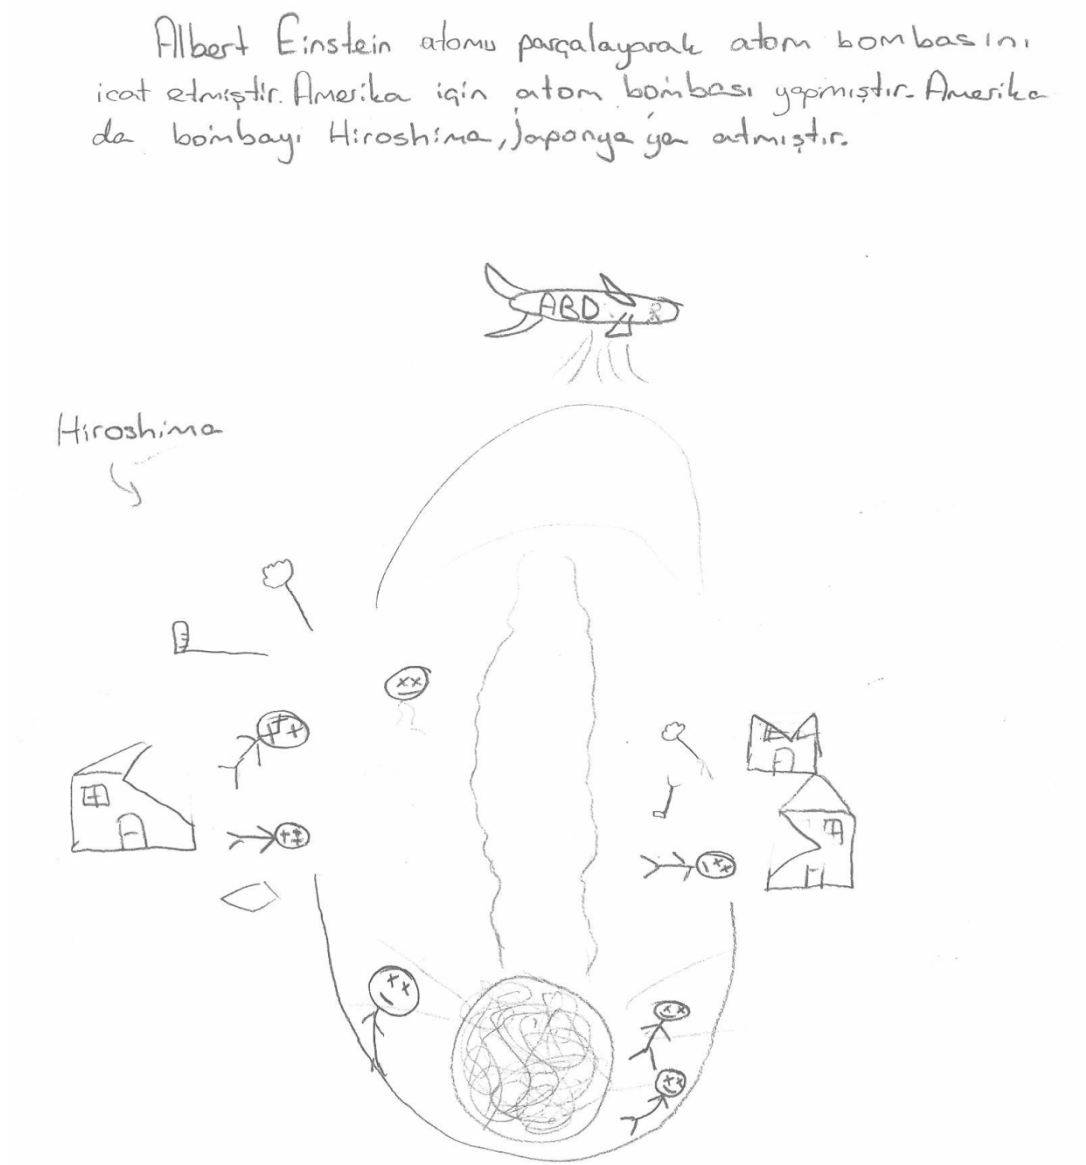 Albert Einstein atomu parçalayarak atom bombasını
icat etmiştir. Amerika için atom bombası yapmıştır. Amerika
da bombayı Hiroshima, Japonya'ya atmıştır.
ABD
Hiroshima